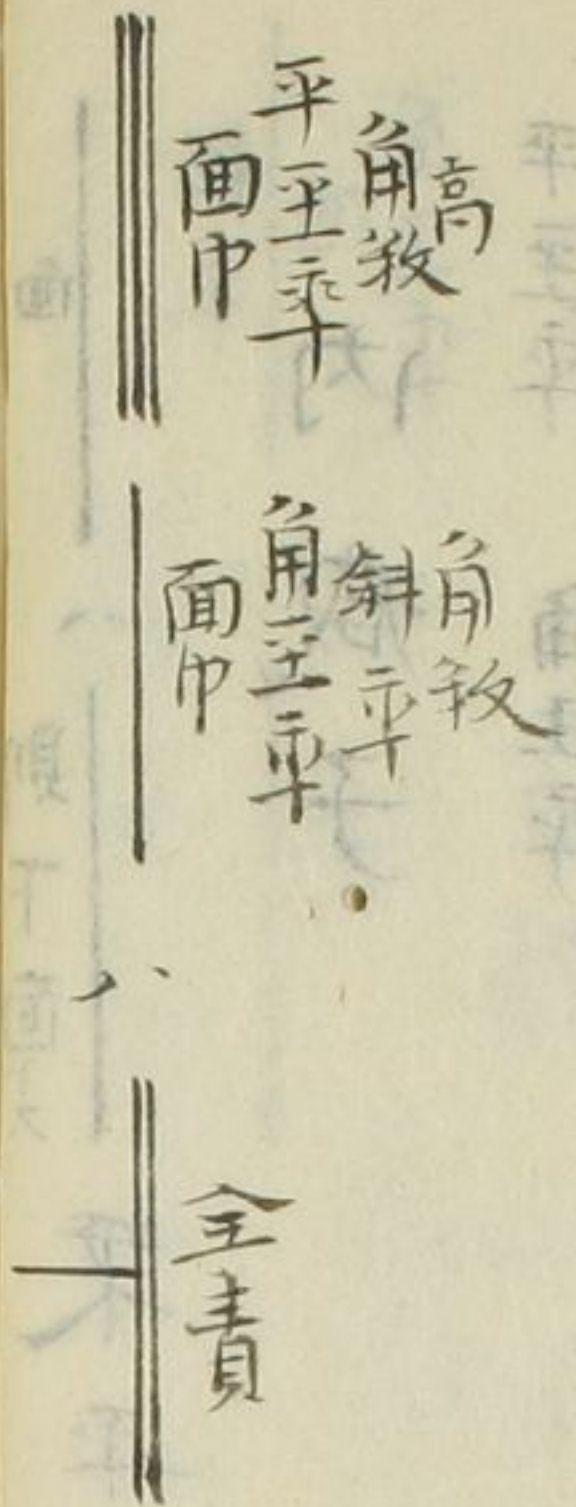 高
角数
平坙率
面巾
角数
斜率
角坙率
面巾
ハ
全責